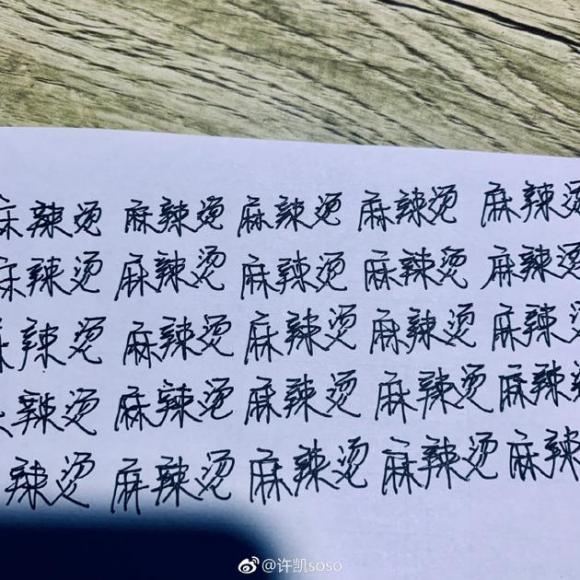 麻辣烫 麻辣烫 麻辣烫 麻辣烫 麻辣烫
麻辣烫 麻辣烫 麻辣烫 麻辣烫 麻辣烫
麻辣烫 麻辣烫 麻辣烫 麻辣烫 麻辣烫
辣烫 麻辣烫 麻辣烫 麻辣烫 麻辣烫
辣烫 麻辣烫 麻辣烫 麻辣烫 麻辣
@许凯soso